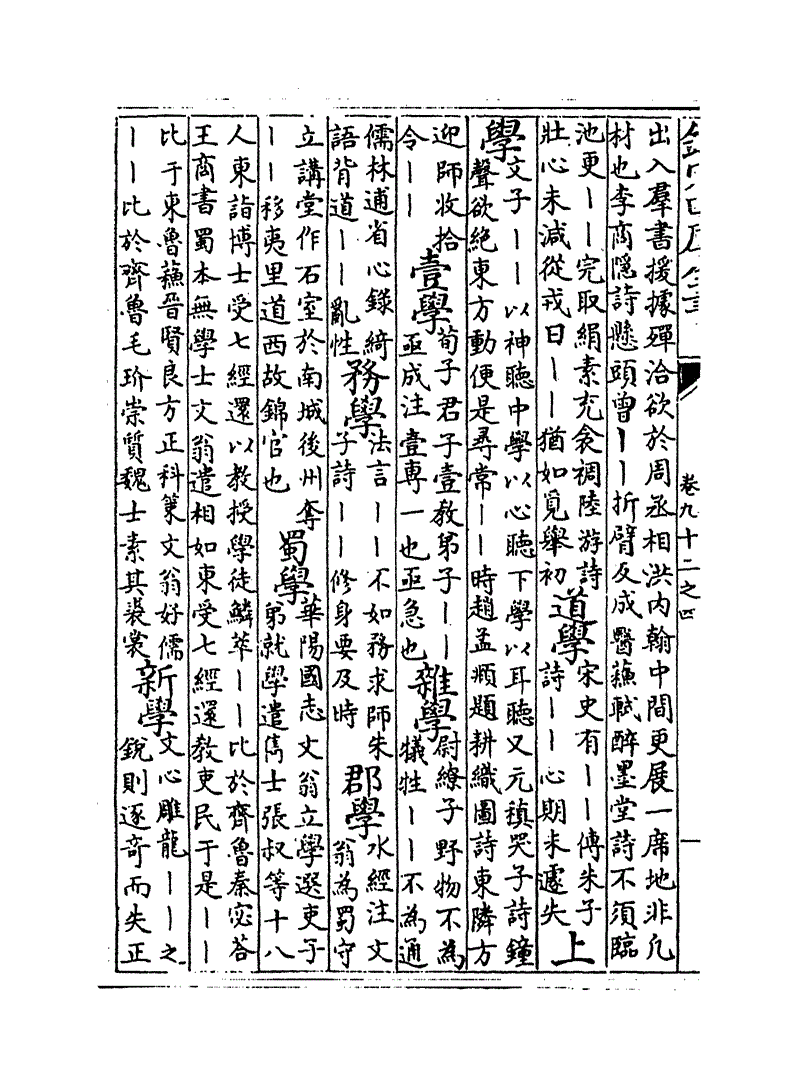 卷九十二之四
出入羣書援據殫洽欲於周丞相洪内翰中間更展一席地非凡
材也李商隱詩懸頭曾丨丨折臂反成醫蘇軾醉墨堂詩不須臨
池更丨丨完取絹素充衾裯陸游詩
壯心未減從戎日丨丨猶如覓舉初
道學
宋史有丨丨傳朱子
詩丨丨心期未遽失
上
學
文子丨丨以神聽中學以心聽下學以耳聽又元稹哭子詩鐘
聲欲絶東方動便是尋常丨丨時趙孟頫題耕織圖詩東隣方
迎師收拾
令丨丨
壹學
荀子君子壹教弟子丨丨
亟成注壹專一也亟急也
雜學
尉繚子野物不為
犧牲丨丨不為通
儒林逋省心錄綺
語背道丨丨亂性
務學
法言丨丨不如務求師朱
子詩丨丨修身要及時
郡學
水經注文
翁為蜀守
立講堂作石室於南城後州奪
丨丨移夷里道西故錦官也
蜀學
華陽國志文翁立學選吏子
弟就學遣雋士張叔等十八
人東詣博士受七經還以教授學徒鱗萃丨丨比於齊魯秦宓荅
王商書蜀本無學士文翁遣相如東受七經還教吏民于是丨丨
比于東魯蘇晉賢良方正科䇿文翁好儒
丨丨比於齊魯毛玠崇質魏士素其裘裳
新學
文心雕龍丨丨之
銳則逐奇而失正